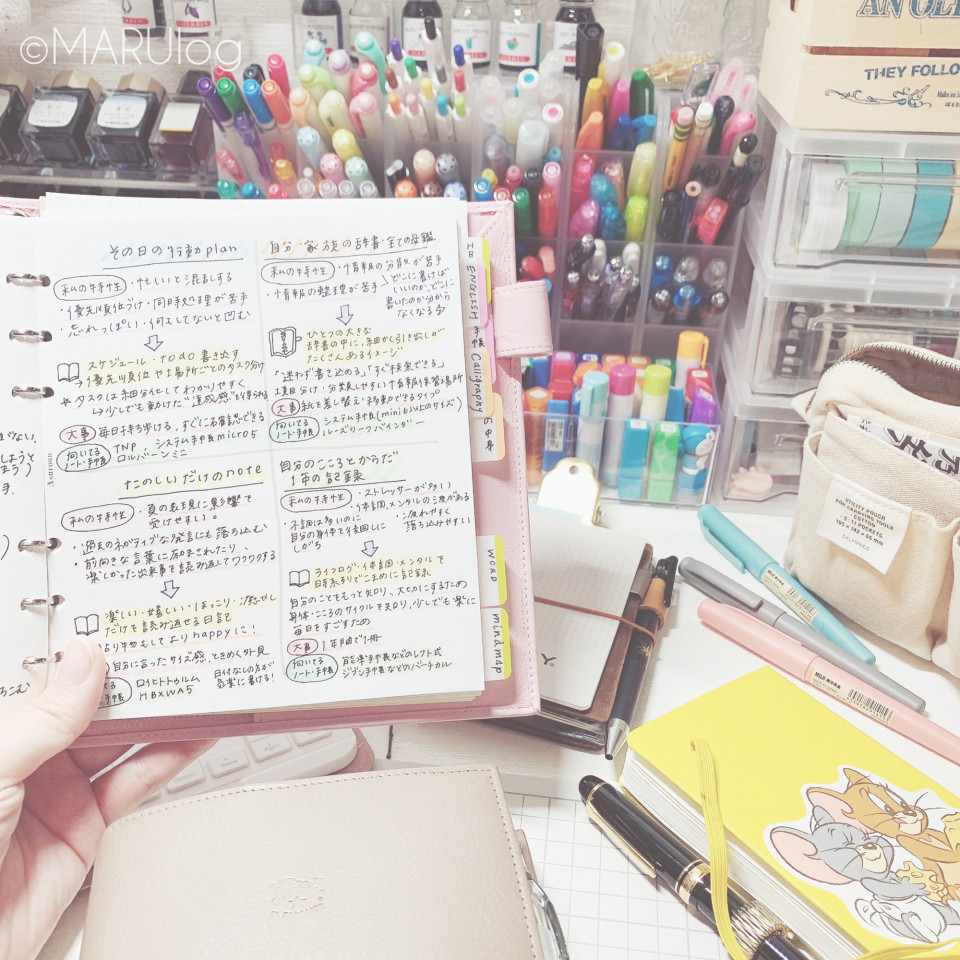 ©MARUlog
AN
THEY FOLLO
その日の行動plan
私の特性 ・忙しいと混乱する
・優先順位づけ・同時処理が苦手
・忘れっぽい・何もしてないと凹む
スケジュール・todo書き出す
→優先順位や場所ごとのタスク分け
☆タスクは細分化してわかりやすく
→少しでも動けた"達成感"を得られる
大事 毎日持ち歩ける,すぐに確認できる
向いてるノート・手帳 TNP システム手帳micro5
ロルバーンミニ
自分・家族の辞書・全ての図鑑
私の特性 ・情報の分散が苦手
・情報の整理が苦手
どこに書けば
いいのか,どこに
書いたのか分から
なくなる
ひとつの大きな
辞書の中に,細かく引き出しが
たくさんあるイメージ
「迷わず書き込める」「すぐ検索できる」
項目分け・分類しやすい情報保管場所
大事 紙を差し替え・移動できるタイプ
向いてるノート・手帳 システム手帳(mini6以上のサイズ)
ルーズリーフバインダー
たのしいだけのnote
私の特性 ・負の表現に影響を
受けやすい。
・過去のネガティブな発言にも落ち込む
・前向きな言葉に励まされたり,
楽しかった出来事を読み返してワクワクする
楽しい・嬉しい・ほっこり・癒し
だけを読み返せる日記
自分に合ったサイズ感,ときめく外見
ロイヒトトゥルム
HBXWA5
日付なしの方が
気楽に書ける!
自分のこころとからだ
1年の記録
私の特性 ・ストレッサーが多い
・体調,メンタルの波がある
不調は多いのに
自分の身体を後回しに
しがち
・疲れやすく
落ち込みやすい
ライフログ・体調・メンタルを
時系列でこまめに記録
自分のことをもっと知り,大切にするため
身体・こころのサイクルを知り,少しでも楽に
毎日をすごすため
大事 1年間で1冊
向いてるノート・手帳 能率手帳などのレフト式
ジブン手帳などのバーチカル
ENGLISH
手帳
Calligraphy
WORD
mindmap
UTILITY POUCH
FOR CARRYING TOOLS
COTTON
11 POCKETS
DELFONICS